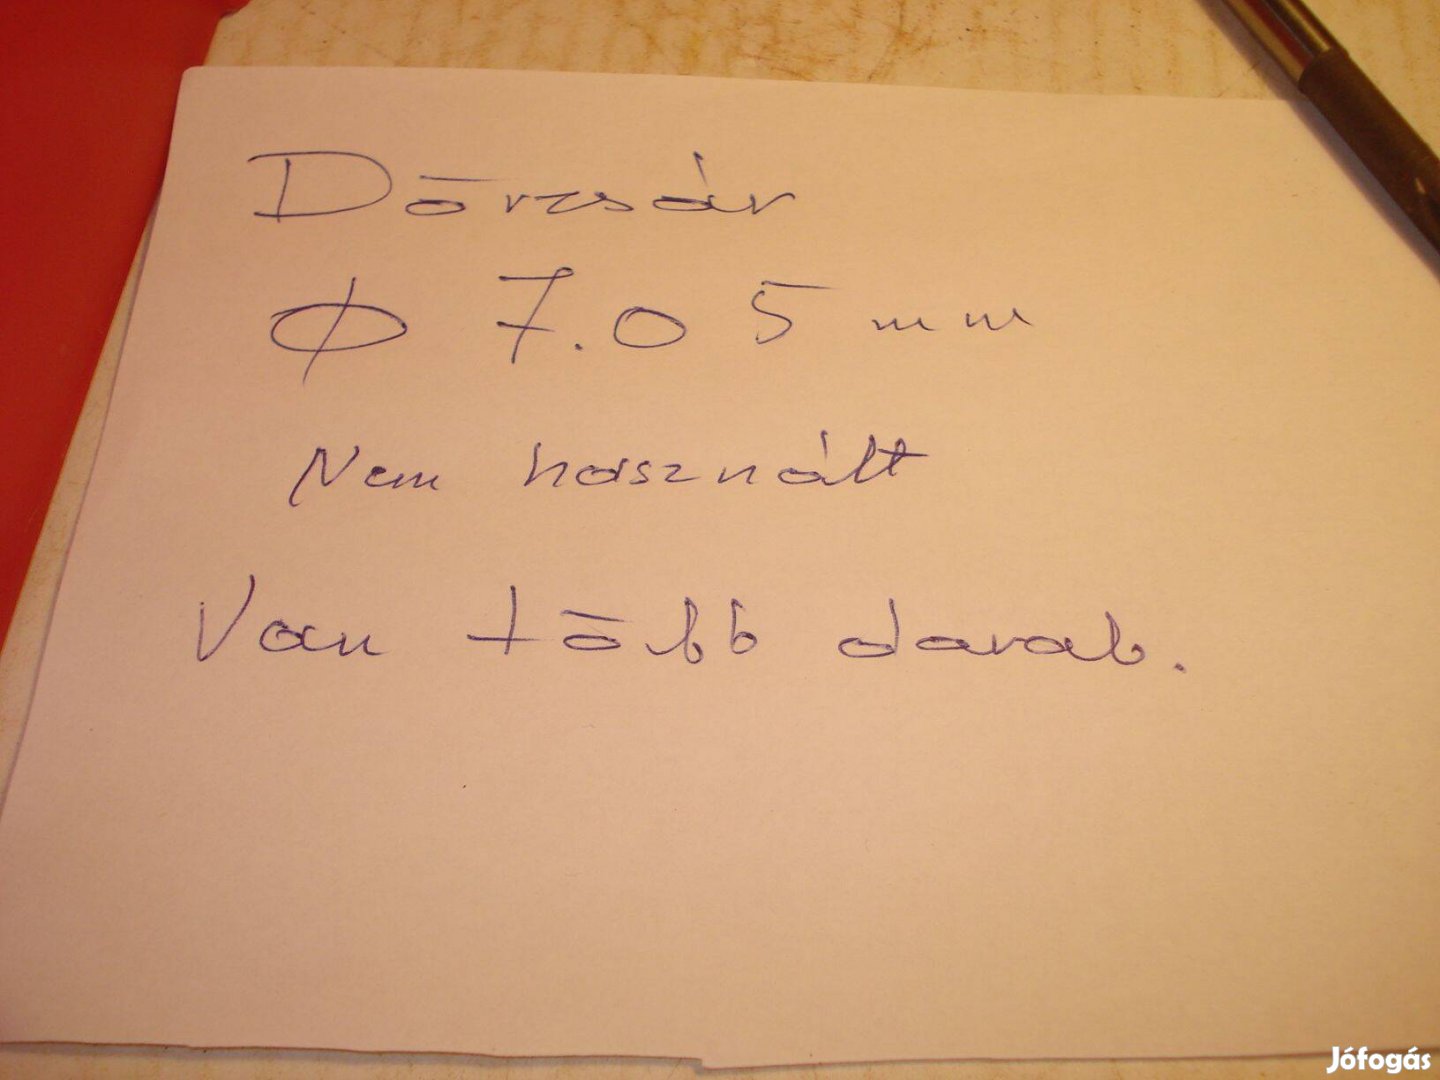 Dörzsár
Ø 7.05 mm
Nem használt
Van több darab.
Jófogás